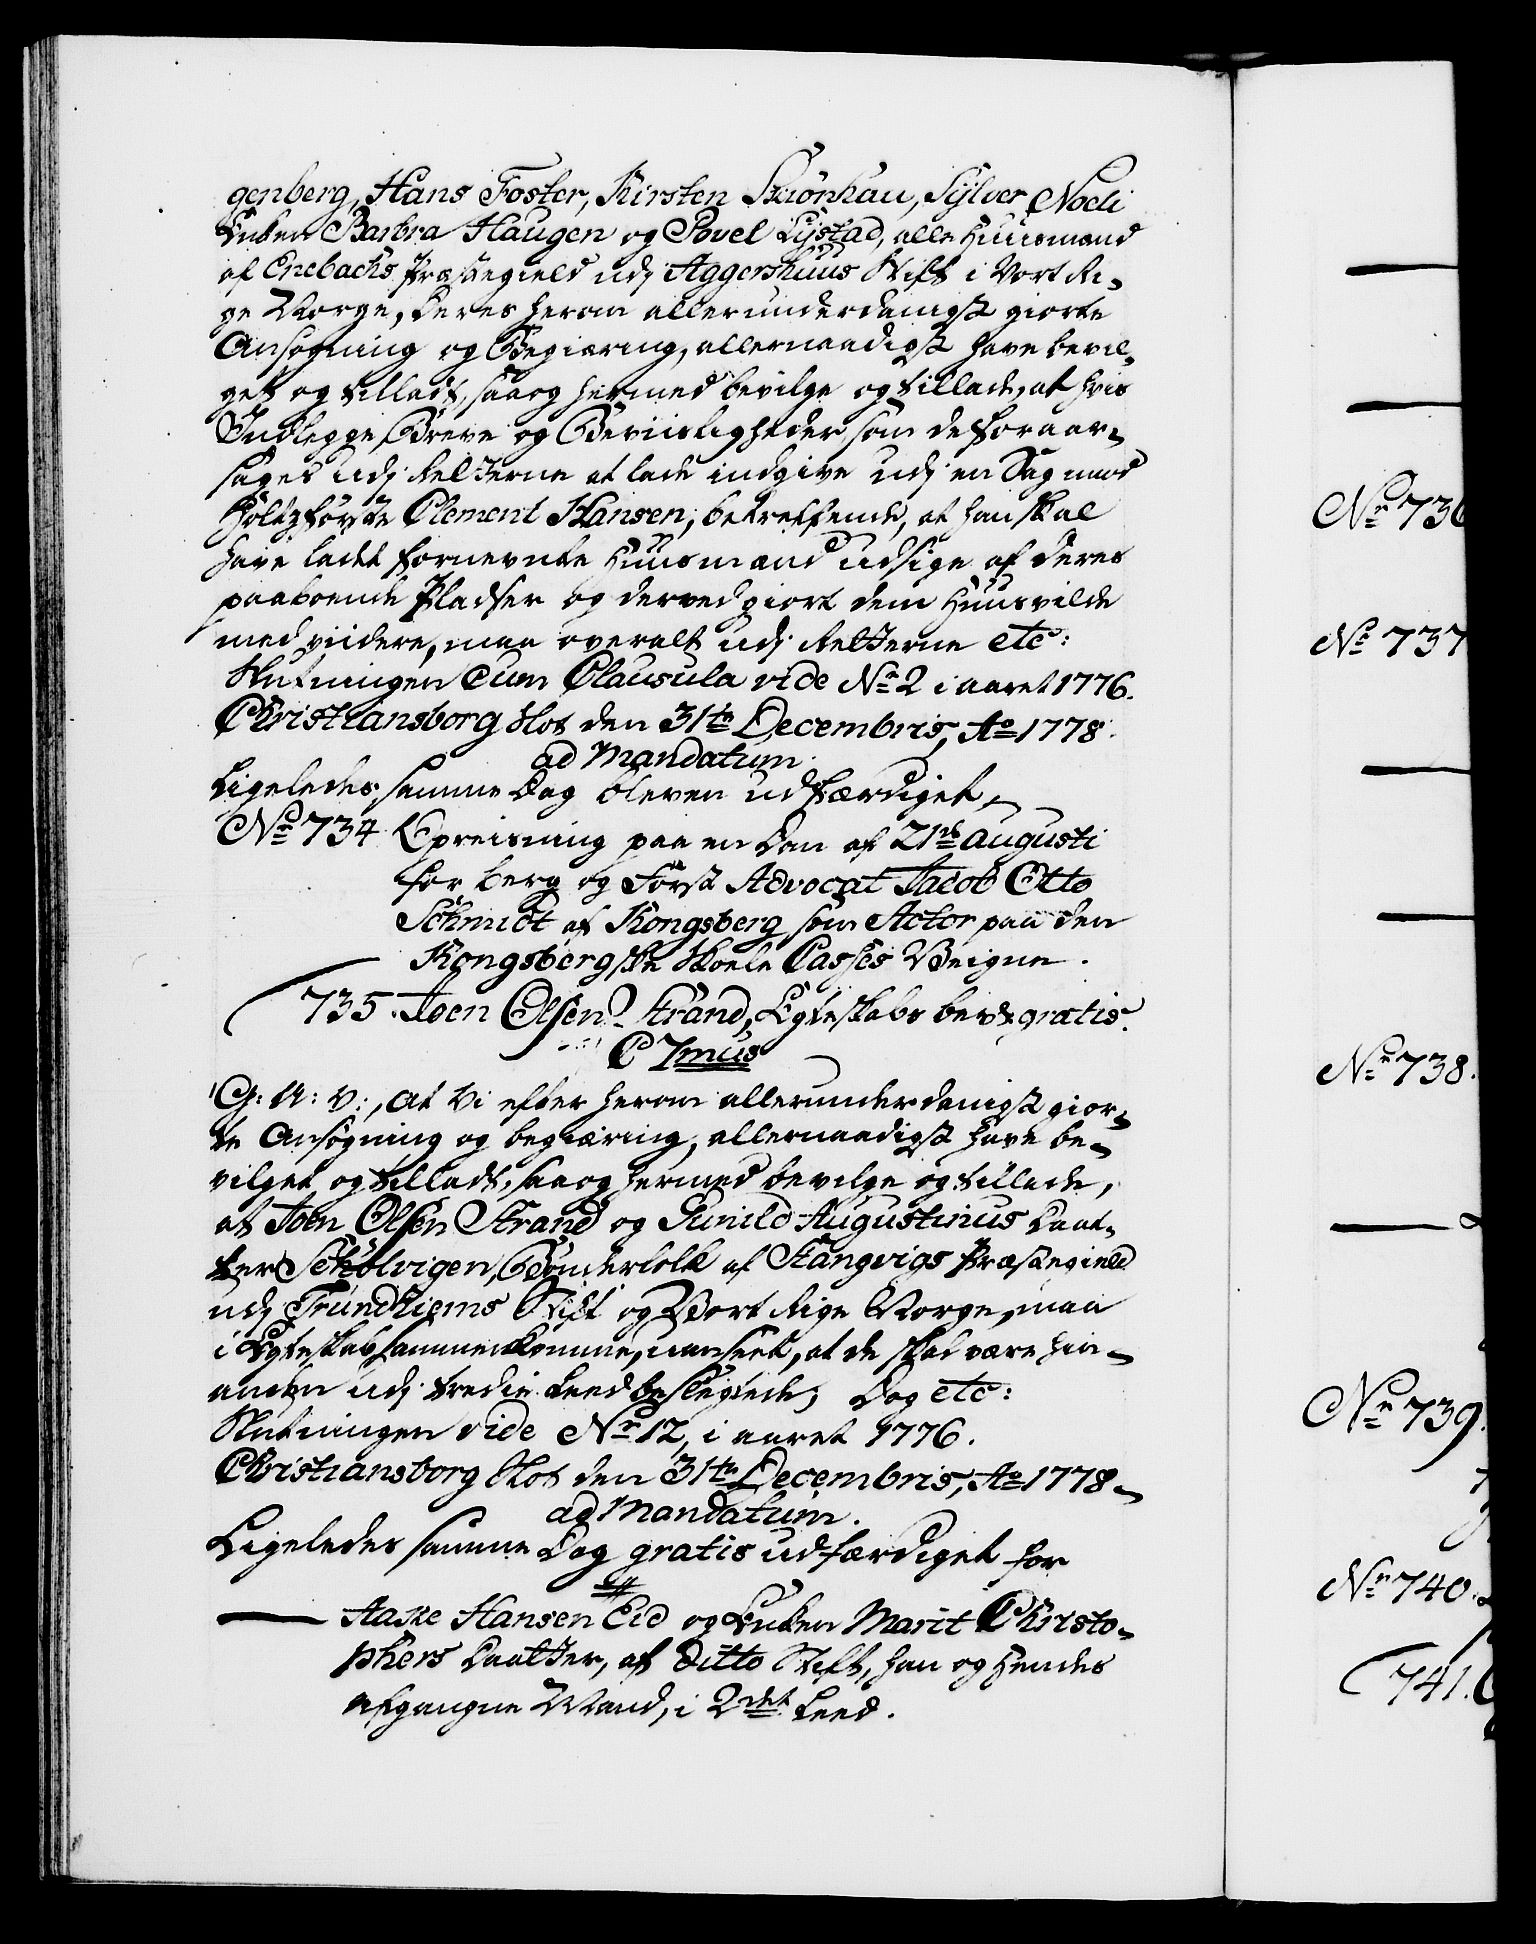 genberg, Hans Foster, Kirsten Skiönhau, Sylver Noeli
Enken Barbra Haugen og Povel Lystad, alle Huusmænd
af Enebachs Præstegield udj Aggershuus Stift i Vort Ri-
ge Norge, deres herom allerunderdanigst giorte
Ansøgning og Begiæring, allernaadigst have bevil-
get og tilladt, saa og hermed bevilge og tillade, at hvis
Indlegge, Breve og Beviisligheder som de foraar-
sages udj Retterne at lade indgive udj en Sag mod
Holtzførster Clement Hansen, betreffende, at han skal
have ladet fornevnte Huusmænd udsige af deres
paaboende Pladser og derved giort dem Huusvilde
med viidere, maa overalt udj Retterne etc:
Slutningen cum Clausula vide No 2 i aaret 1776.
Christiansborg Slot den 31te Decembris, Ao 1778.
ad Mandatum.
Ligeledes samme Dag bleven udfærdiget,
No 734 Opreisning paa en Dom af 21de Augusti
for berg og Forst Advocat Jacob Otto
Schmidt af Kongsberg som Actor paa den
Kongsbergske Skoele Casses Vegne.
735. Joen Olsen Strand, Egteskabs bev: gratis.
C 7mus
G: A: V:, At Vi efter herom allerunderdanigst gior-
te Ansøgning og begiæring, allernaadigst have be-
vilget og tilladt, saa og hermed bevilge og tillade,
at Joen Olsen Strand og Gunild Augustinus Daat-
ter Schølvigen, Bønderfolk af Stangvigs Præstegield
udj Trundhiems Stift og Vort Rige Norge, maa
i Egteskab sammenkomme, uanseet, at de skal være hin-
anden udj tredie Leed beslegtede, Dog etc:
Slutningen vide No 12, i aaret 1776.
Christiansborg Slot den 31te Decembris, Ao 1778.
ad Mandatum.
Ligeledes samme Dag gratis udfærdiget for
Aaske Hansen Eid og Enken Marit Christo-
phers Daatter, af Ditto Stift, han og Hendes
afgangne Mand, i 2det Leed.
No 736
No 737
No 738.
No 739.
No 740.
741.